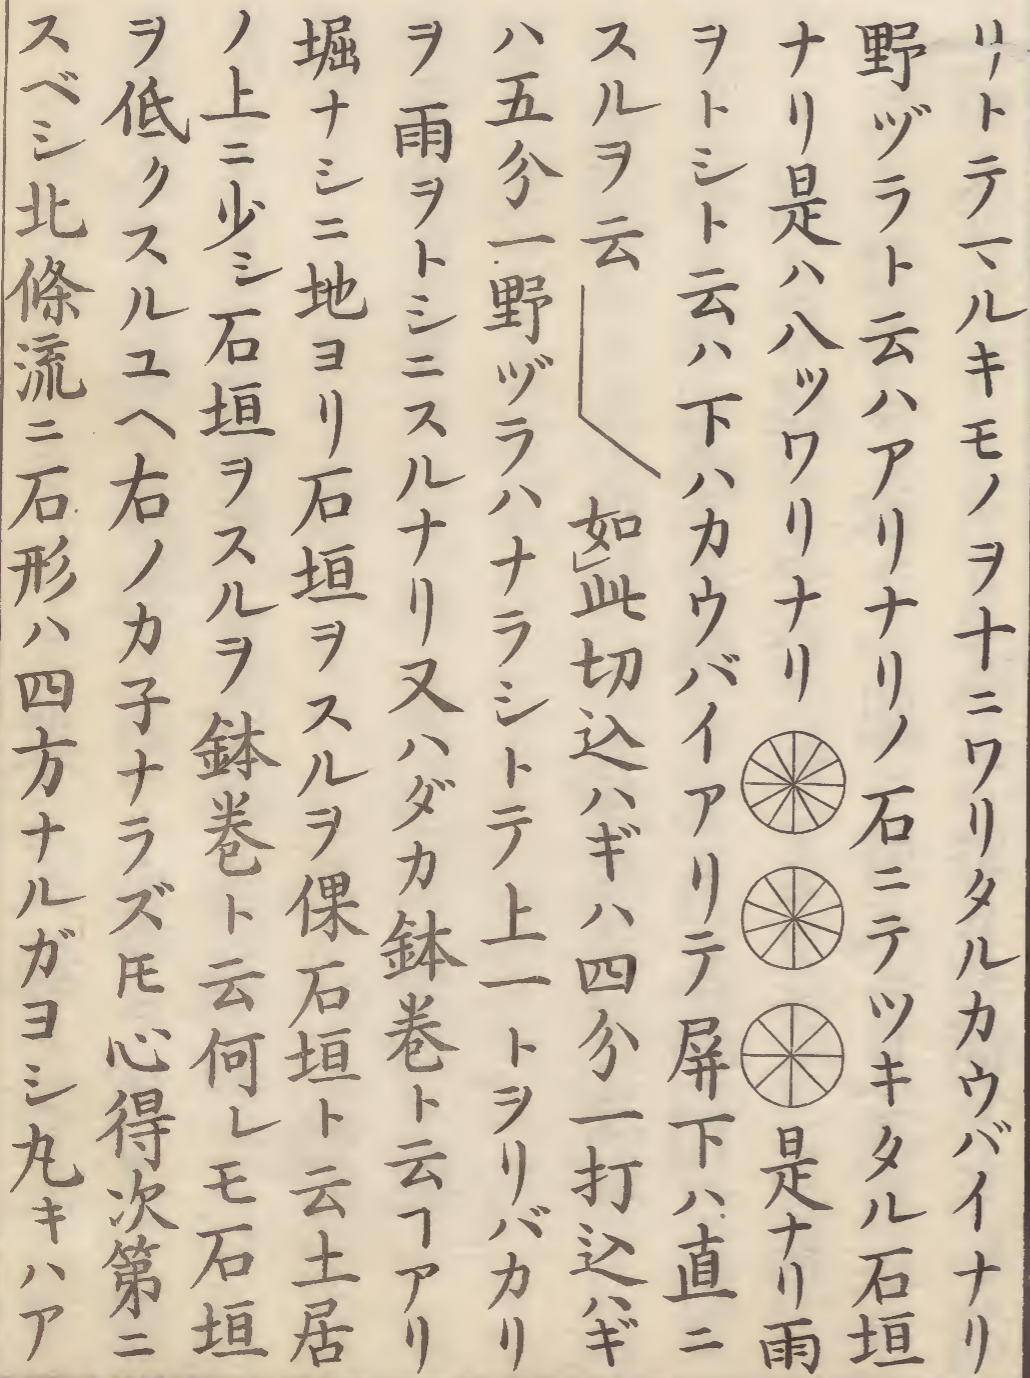 リトテマルキモノヲ十ニワリタルカウバイナリ
野ヅラト云ハアリナリノ石ニテツキタル石垣
ナリ是ハ八ツワリナリ是ナリ雨
ヲトシト云ハ下ハカウバイアリテ屏下ハ直ニ
スルヲ云如レ此切込ハギハ四分一打込ハギ
ハ五分一野ヅラハナラシトテ上一トヲリバカリ
ヲ雨ヲトシニスルナリ又ハダカ鉢巻ト云ヿアリ
堀ナシニ地ヨリ石垣ヲスルヲ倮石垣ト云土居
ノ上ニ少シ石垣ヲスルヲ鉢巻ト云何レモ石垣
ヲ低クスルユヘ右ノカ子ナラズ𪜈心得次第ニ
スベシ北條流ニ石形ハ四方ナルガヨシ丸キハア